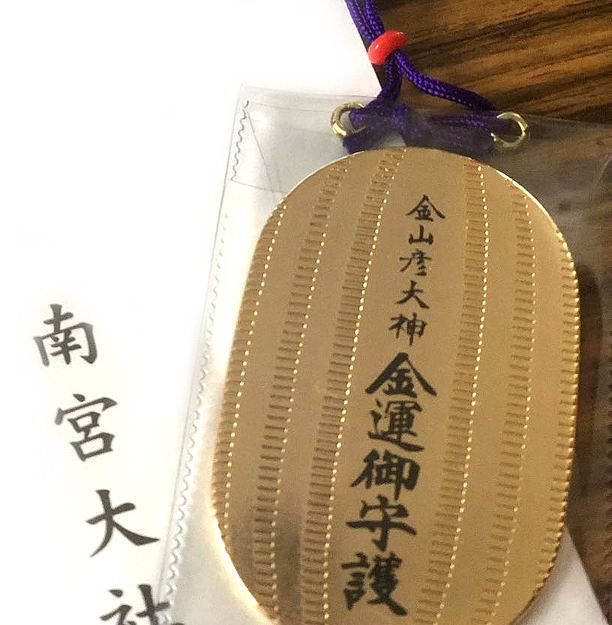 金山彦大神
金運御守護
南宮大社